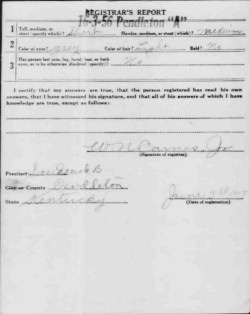 REGISTRAR'S REPORT
16-3-56 Pendleton "A"
1 Tall, medium, or short (specify which)? Short Slender, medium, or stout (which)? Medium
2 Color of eyes? Gray Color of hair? Light Bald? No
3 Has person lost arm, leg, hand, foot, or both eyes, or is he otherwise disabled (specify)? No
I certify that my answers are true, that the person registered has read his own
answers, that I have witnessed his signature, and that all of his answers of which I have
knowledge are true, except as follows:
(Signature of registrar)
Precinct
City or County Pendleton
State Kentucky
June 5th
(Date of registration)